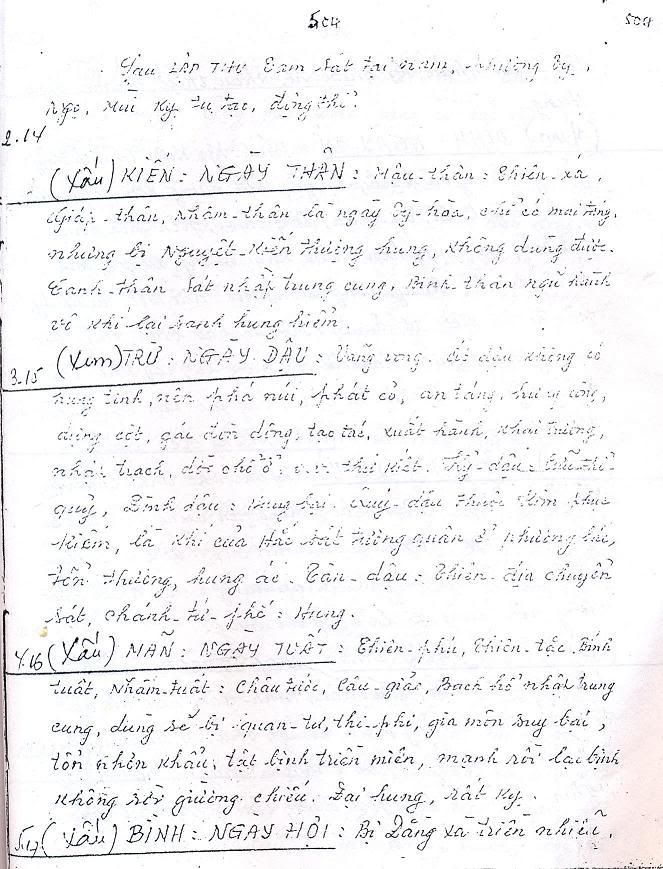 504 504
Sau LẬP THU Tam sát tại nam, phương Tỵ,
Ngọ, Mùi kỵ tu tạo, động thổ.
2.14
(Xấu) KIẾN : NGÀY THÂN : Mậu-thân : Thiên-xá,
Giáp-thân, Nhâm-thân là ngày
nhưng bị Nguyệt-Kiến thượng hung, không dùng được.
Canh-thân sát nhập trung cung, Bính-thân ngũ hành
vô khí lại sanh hung hiểm.
3.15 (Xem) TRỪ : NGÀY DẬU : Vãng vong. Ất dậu không có
hung tinh, nên phá núi, phát cỏ, an táng, hưng công,
dựng cột, gác đòn dông, tạo tác, xuất hành, khai trương,
nhập trạch, dời chỗ ở thứ kiết. Kỷ-dậu : Cửu thổ
quỷ, Đinh dậu : hung bại. Quý-dậu thuộc Kim phục
Kiếm, là khí của Hắc sát tướng quân ở phương bắc,
tổn thương, hung ác. Tân-dậu : Thiên-địa chuyển
sát, chánh-tứ-phế : Hung.
4.16 (Xấu) MÃN : NGÀY TUẤT : Thiên-phú, Thiên-tặc. Bính
tuất, Nhâm-tuất : Châu tước, Câu-giảo, Bạch hổ nhập trung
cung, dùng sẽ bị quan-tư, thị-phi, gia môn suy bại,
tổn nhơn khẩu, tật bịnh triền miên, mạnh rồi lại bịnh
không rời giường chiếu. Đại hung, rất kỵ.
5.17 (Xấu) BÌNH : NGÀY HỢI : Bị Đằng xà triền nhiễu,